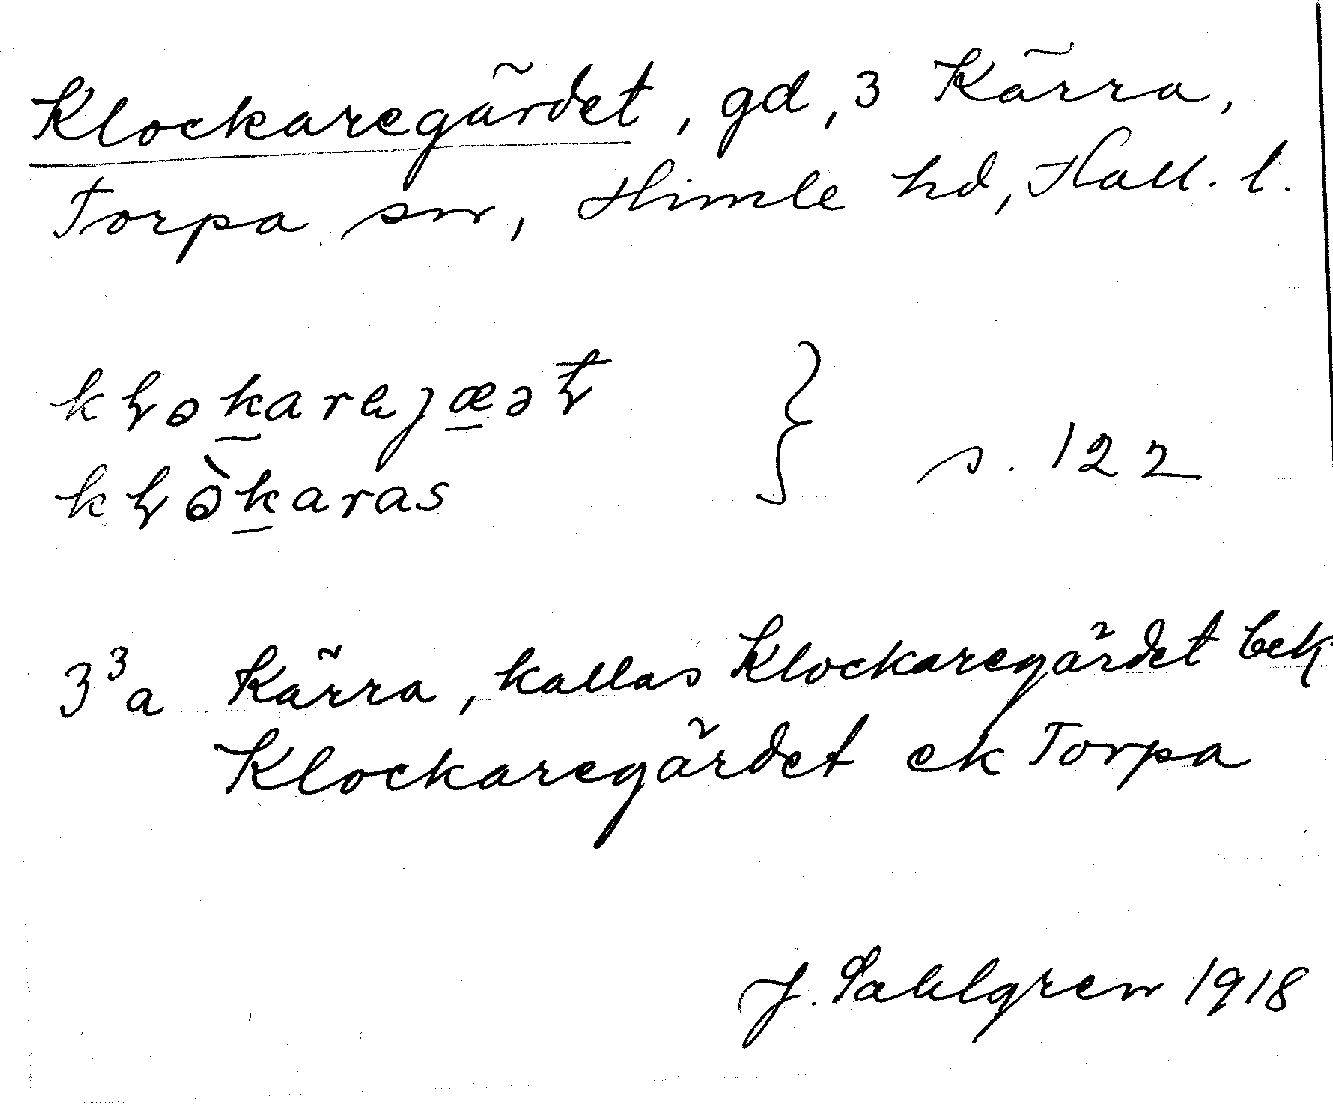 Klockaregärdet, gd, 3 Kärra,
Torpa sn, Himle hd, Hall. l.
s. 122
3³a Kärra, kallas Klockaregärdet bek
Klockaregärdet ek Torpa
J. Sahlgren 1918